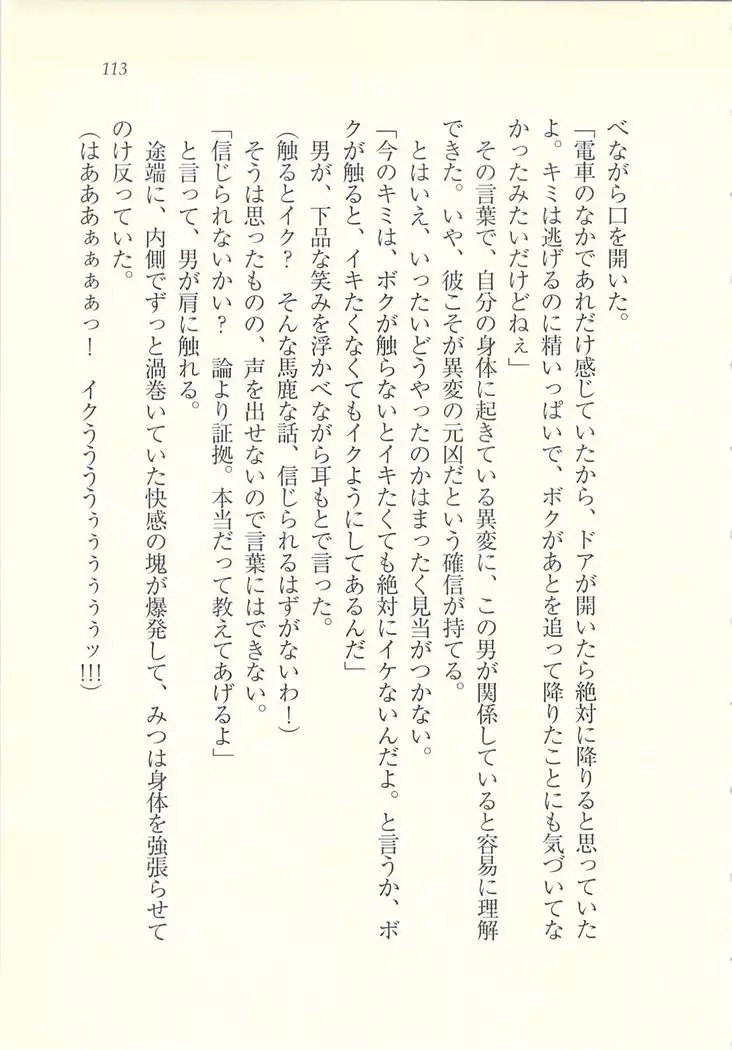 113
べながら口を開いた。
「電車のなかであれだけ感じていたから、ドアが開いたら絶対に降りると思っていた
よ。キミは逃げるのに精いっぱいで、ボクがあとを追って降りたことにも気づいてな
かったみたいだけどねぇ」
その言葉で、自分の身体に起きている異変に、この男が関係していると容易に理解
できた。いや、彼こそが異変の元凶だという確信が持てる。
とはいえ、いったいどうやったのかはまったく見当がつかない。
「今のキミは、ボクが触らないとイキたくても絶対にイケないんだよ。と言うか、ボ
クが触ると、イキたくなくてもイクようにしてあるんだ」
男が、下品な笑みを浮かべながら耳もとで言った。
(触るとイク？　そんな馬鹿な話、信じられるはずがないわ！)
そうは思ったものの、声を出せないので言葉にはできない。
「信じられないかい？　論より証拠。本当だって教えてあげるよ」
と言って、男が肩に触れる。
途端に、内側でずっと渦巻いていた快感の塊が爆発して、みつは身体を強張らせて
のけ反っていた。
(はあああぁぁぁぁっ！　イクううううぅぅぅぅぅッ!!!)